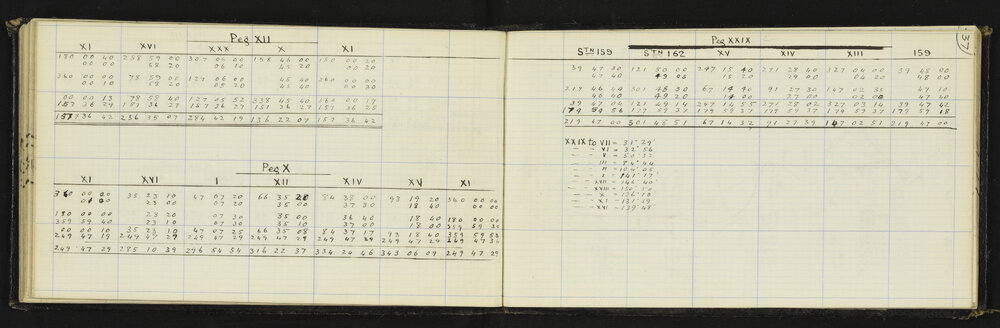 Peg XII
XI XVI XXX X XI
180 00 40 258 59 00 307 06 00 158 46 00 180 00 20
00 00 58 20 06 10 45 20 00 20
360 00 00 78 59 00 127 06 00 45 40 360 00 00
00 10 58 20 05 20 45 20 00 20
00 00 13 78 58 40 127 05 52 338 45 40 160 00 17
157 36 29 157 36 27 157 36 27 157 36 27 157 36 25
157 36 42 236 35 07 284 42 19 136 22 07 157 36 42
Peg X
XI XVI I XII XIV XV XI
360 00 00 35 23 10 47 07 20 66 35 20 84 38 00 93 19 20 360 00 00
01 00 23 00 07 20 35 00 37 30 18 40 00 00
180 00 00 23 20 07 30 35 00 36 40 18 40 180 00 00
359 59 40 23 10 07 30 35 10 37 00 18 00 359 59 30
00 00 10 35 23 10 47 07 25 66 35 08 84 37 17 93 18 40 359 59 53
249 47 19 249 47 29 249 47 29 249 47 29 249 47 29 249 47 29 249 47 36
249 47 29 285 10 39 296 54 54 316 22 37 334 24 46 343 06 09 249 47 29
37
Peg XXIX
STN 159 STN 162 XV XIV XIII 159
39 47 30 121 50 00 247 15 40 271 28 40 327 04 00 39 48 00
47 40 49 06 15 20 29 00 04 20 48 00
219 46 40 301 48 30 67 14 40 91 27 30 147 02 35 47 10
46 40 49 20 14 00 27 00 02 00 47 40
39 47 04 121 49 14 247 14 55 271 28 02 327 03 14 39 47 42
179 59 56 179 59 37 179 59 37 179 59 37 179 59 37 179 59 18
219 47 00 301 48 51 67 14 32 91 27 39 147 02 51 219 47 00
XXIX to VII = 31° 29'
— — VI = 32° 56
— — V = 50 32
— — III = 84° 44
— — II = 104° 05
— — I = 141° 17'
— — XVII = 146° 40
— — XVIII = 150° 50
— — X = 136° 10
— — XI = 131° 19
— — XVI = 139° 48